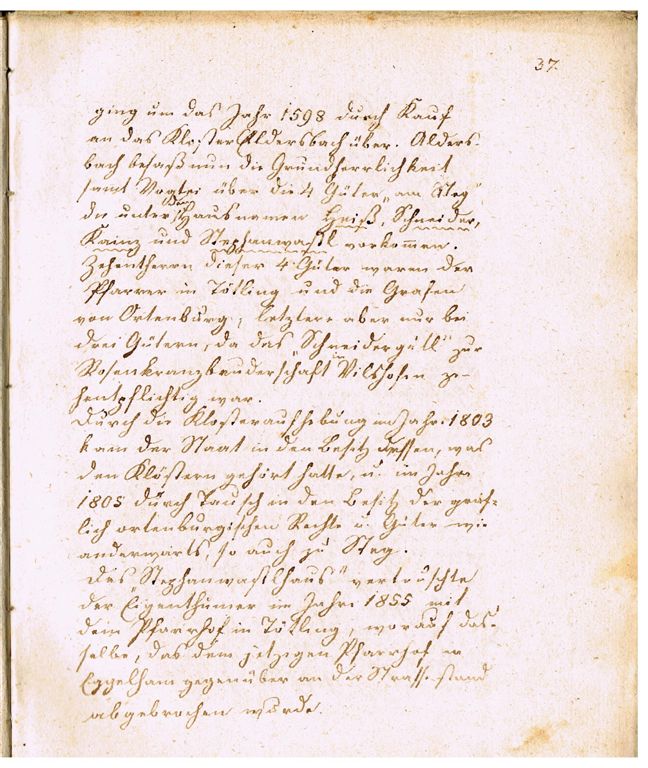 37.
ging um das Jahr 1598 durch Kauf
an das Kloster Aldersbach über. Alders-
bach besaß nun die Grundherrlichkeit
samt Vogtei über die 4 Güter „am Steg“
die unter den Hausnamen Heiß, Schneider,
Kainz und Stephanwastl vorkommen.
Zehentherrn dieser 4 Güter waren der
Pfarrer in Tötling und die Grafen
von Ortenburg, letztere aber nur bei
drei Gütern, da das „Schneidergütl“ zur
Rosenkranzbruderschaft in Vilshofen ze-
hentpflichtig war.
Durch die Klosteraufhebung im Jahre 1803
kam der Staat in den Besitz dessen, was
den Klöstern gehört hatte, u. im Jahre
1805 durch Tausch in den Besitz der gräf-
lich ortenburgischen Rechte u. Güter wie
anderwärts, so auch zu Steg.
Das „Stephanwastlhaus“ vertauschte
der Eigenthümer im Jahre 1855 mit
dem Pfarrhof in Tötling, worauf das-
selbe, das dem jetzigen Pfarrhof in
Eggelham gegenüber an der Strasse stand
abgebrochen wurde.